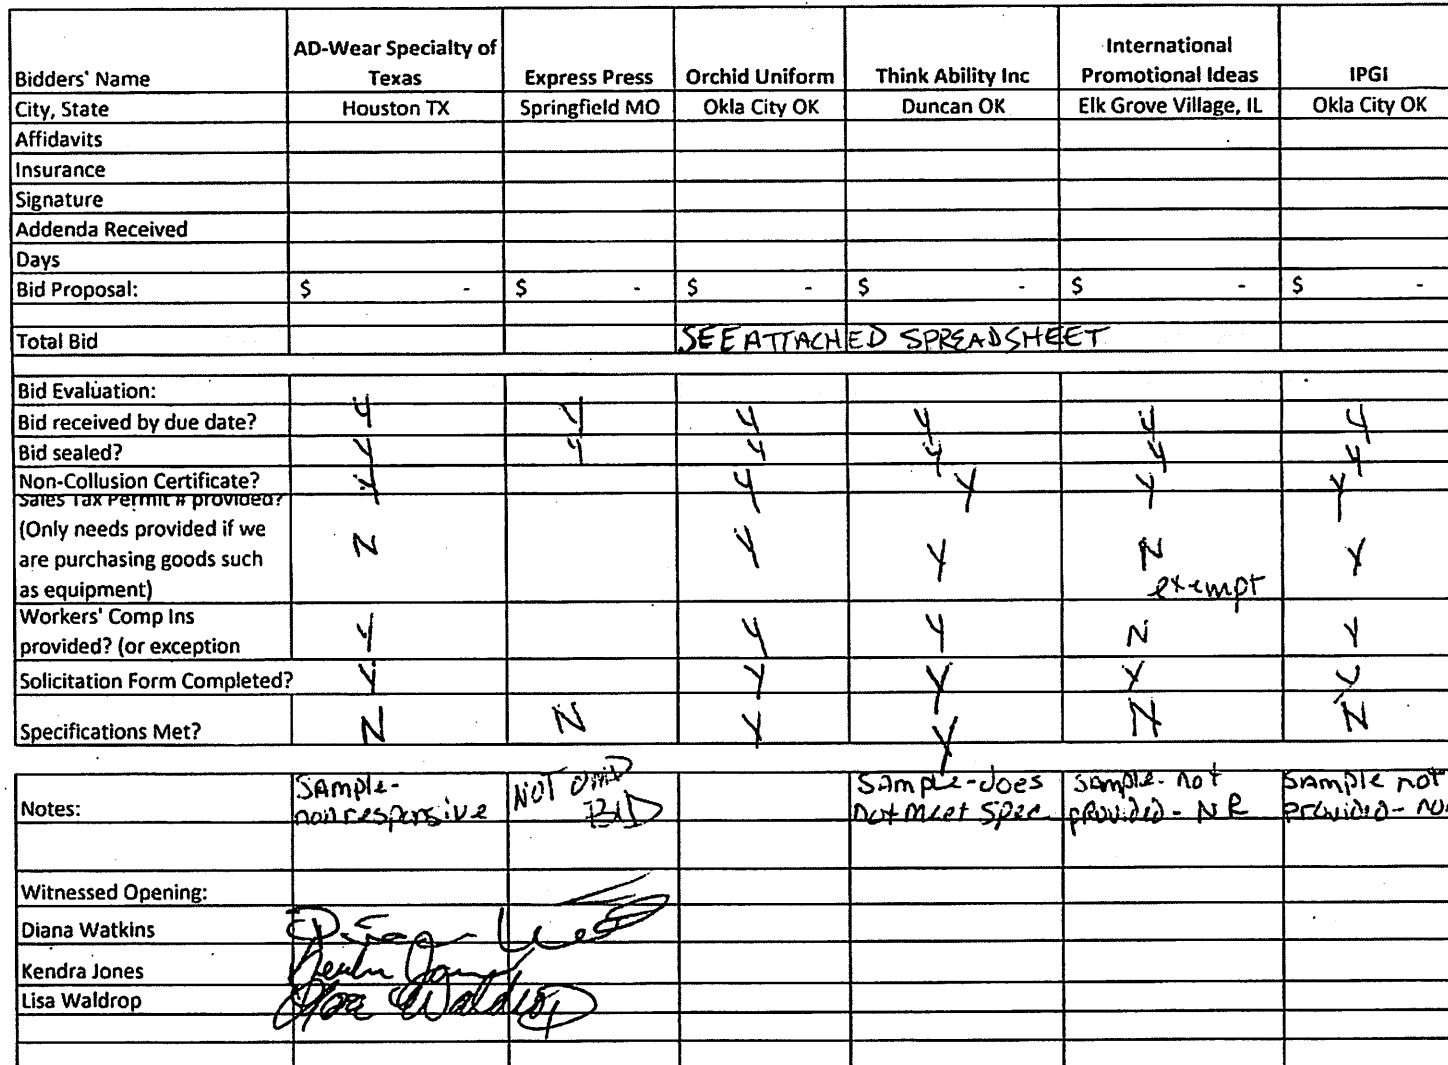 Bidders' Name AD-Wear Specialty of Texas Express Press Orchid Uniform Think Ability Inc International Promotional Ideas IPGI
City, State Houston TX Springfield MO Okla City OK Duncan OK Elk Grove Village, IL Okla City OK
Affidavits
Insurance
Signature
Addenda Received
Days
Bid Proposal: $ - $ - $ - $ - $ - $ -
Total Bid SEE ATTACHED SPREADSHEET
Bid Evaluation:
Bid received by due date? Y Y Y Y Y Y
Bid sealed? Y Y Y Y Y Y
Non-Collusion Certificate? Y Y Y Y Y
Sales Tax Permit # provided?
(Only needs provided if we
are purchasing goods such N Y Y N Y
as equipment) exempt
Workers' Comp Ins
provided? (or exception Y Y Y N Y
Solicitation Form Completed? Y Y Y Y Y
Specifications Met? N N Y Y N N
Notes: Sample- nonresponsive NOT BID Sample-does not meet Spec Sample-not provided- NR Sample not provided-
Witnessed Opening:
Diana Watkins
Kendra Jones
Lisa Waldrop